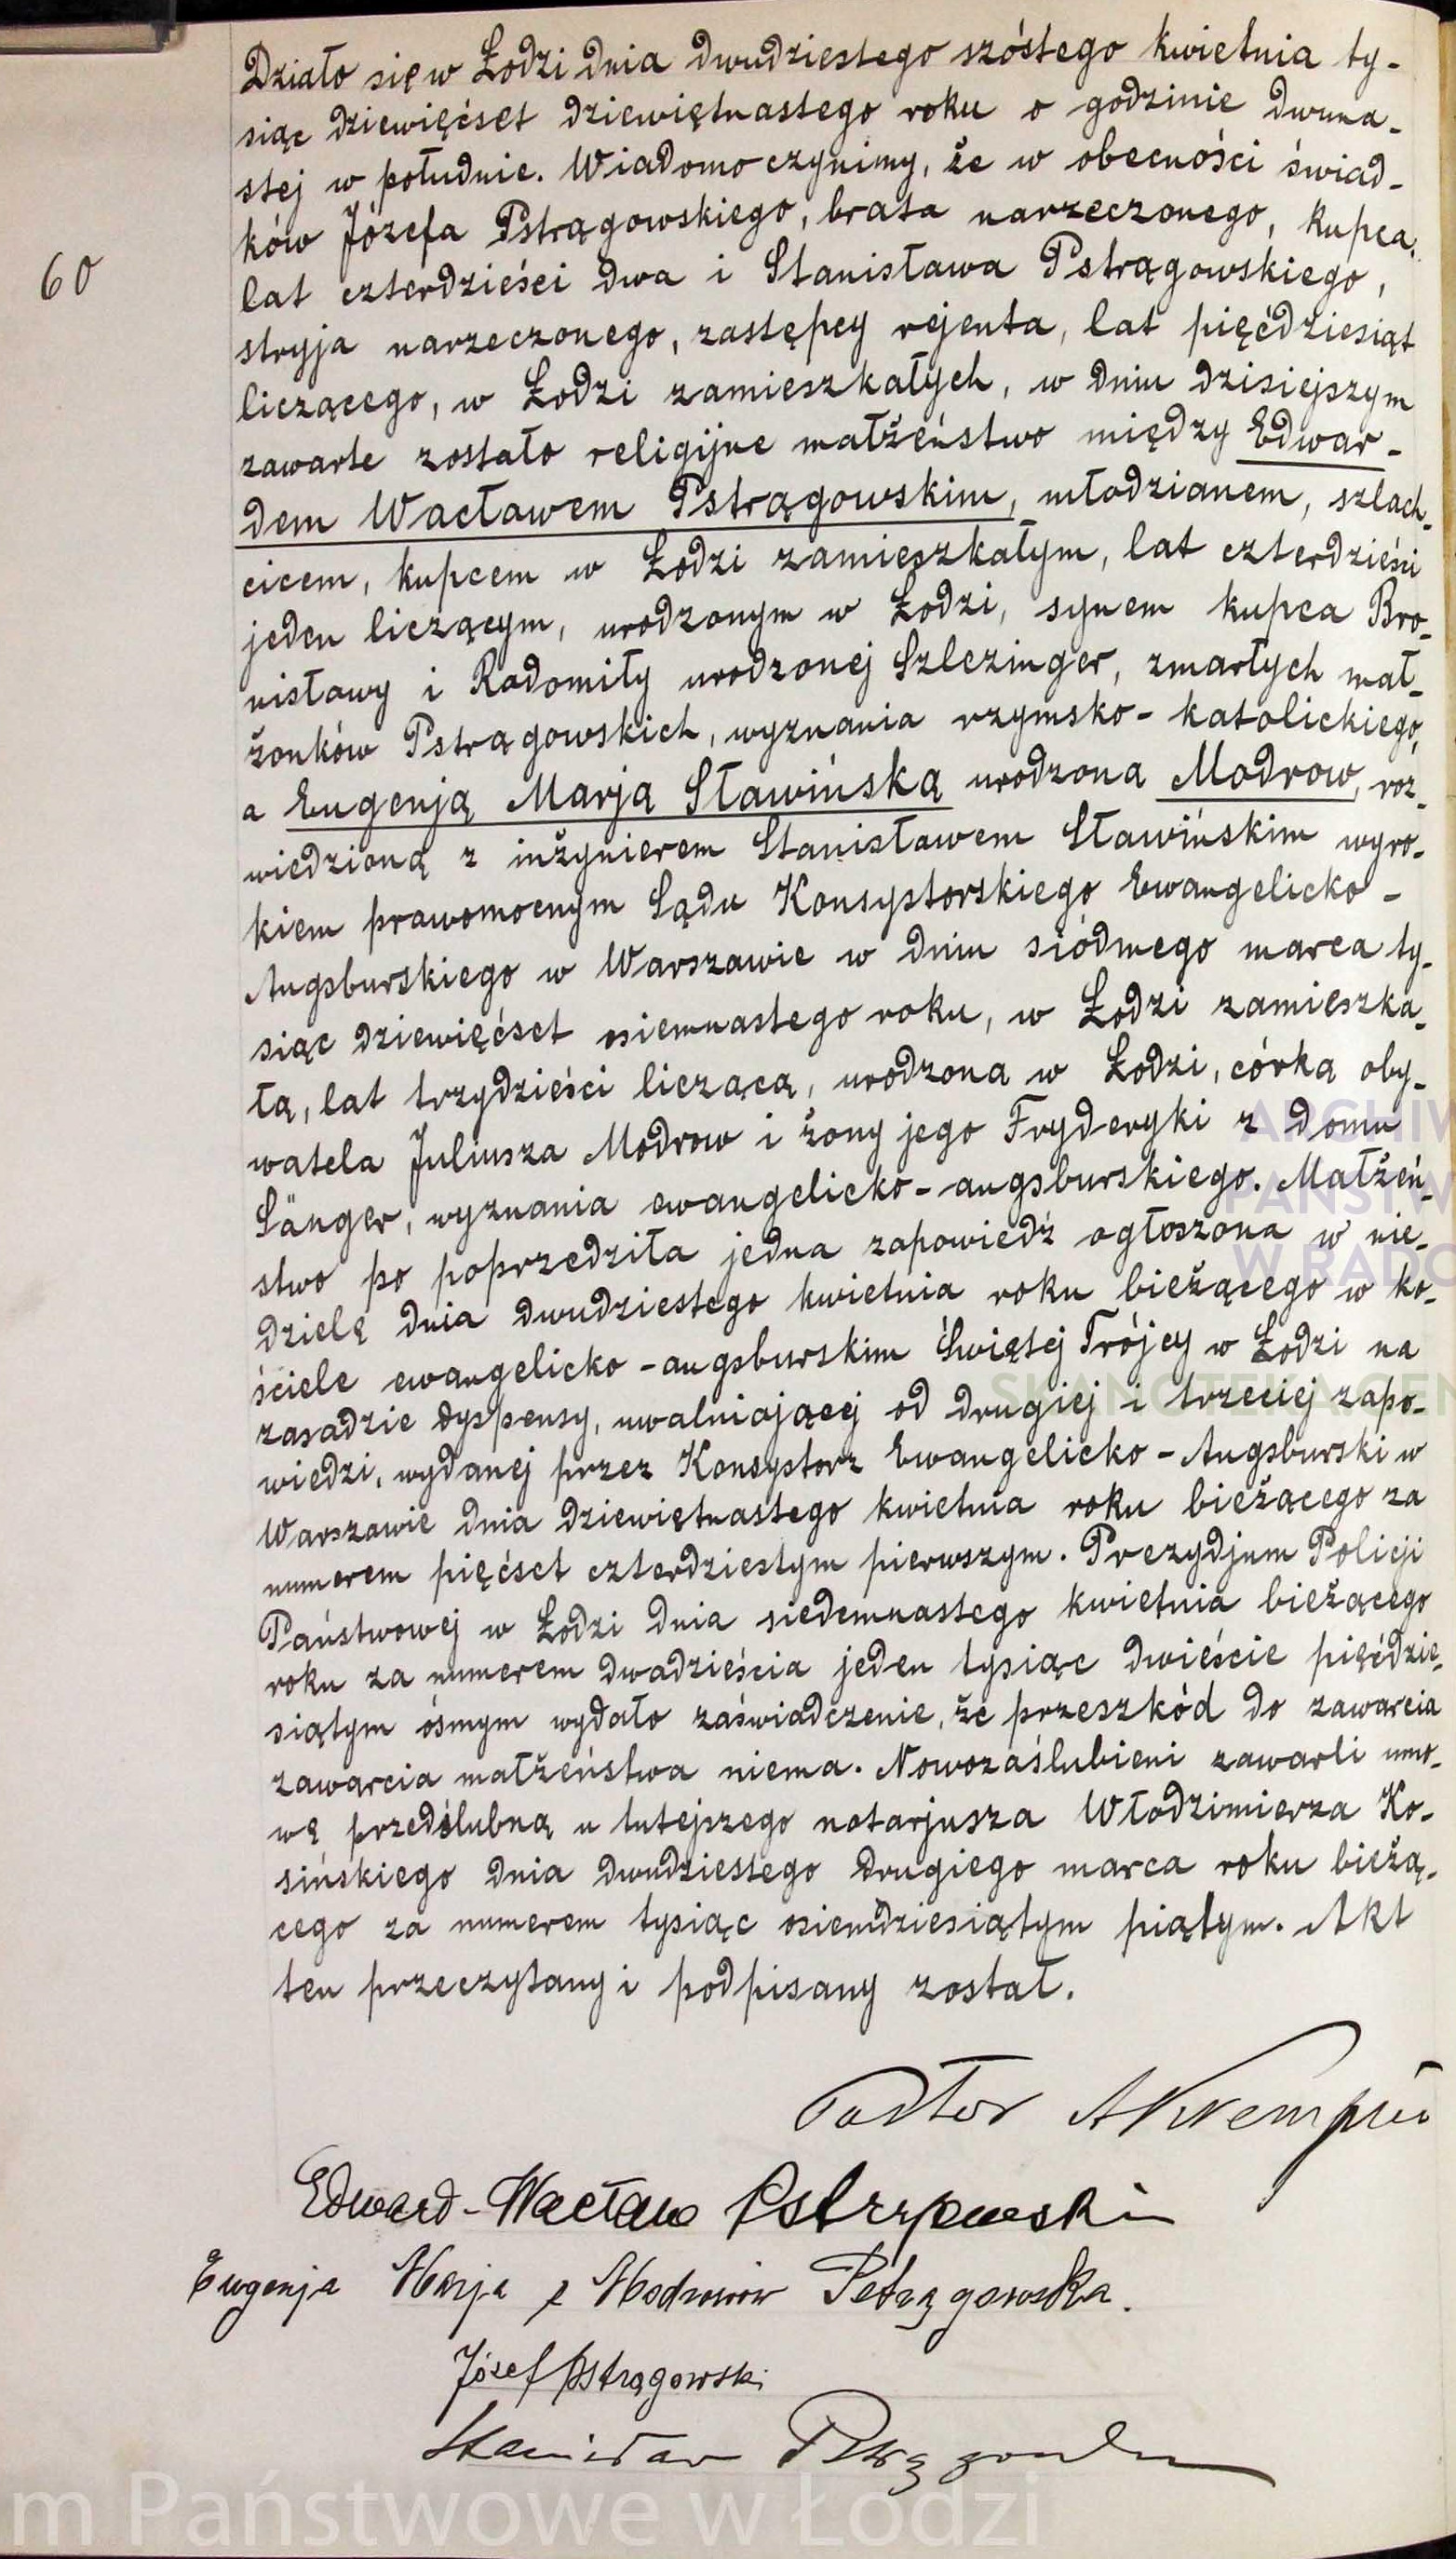 Działo się w Łodzi dnia dwudziestego szóstego kwietnia ty-
siąc dziewięćset dziewiętnastego roku o godzinie dwuna-
stej w południe. Wiadomo czynimy, że w obecności świad-
ków Józefa Pstrągowskiego, brata narzeczonego, kupca,
60
lat czterdzieści dwa i Stanisława Pstrągowskiego,
stryja narzeczonego, zastępcy rejenta, lat pięćdziesiąt
liczącego, w Łodzi zamieszkałych, w dniu dzisiejszym
zawarte zostało religijne małżeństwo między Edwar-
dem Wacławem Pstrągowskim, młodzianem, szlach-
cicem, kupcem w Łodzi zamieszkałym, lat czterdzieści
jeden liczącym, urodzonym w Łodzi, synem kupca Bro-
nisławy i Radomiły urodzonej Szlezinger, zmarłych mał-
żonków Pstrągowskich, wyznania rzymsko-katolickiego,
a Eugenją Marją Sławińską urodzoną Modrow, roz-
wiedzioną z inżynierem Stanisławem Sławińskim wyro-
kiem prawomocnym Sądu Konsystorskiego Ewangelicko-
Augsburskiego w Warszawie w dniu siódmego marca ty-
siąc dziewięćset osiemnastego roku, w Łodzi zamieszka-
łą, lat trzydzieści liczącą, urodzoną w Łodzi, córką oby-
watela Juliusza Modrow i żony jego Fryderyki z domu
Sänger, wyznania ewangelicko-augsburskiego. Małżeń-
stwo po poprzedziła jedna zapowiedź ogłoszona w nie-
dzielę dnia dwudziestego kwietnia roku bieżącego w ko-
ściele ewangelicko-augsburskim Świętej Trójcy w Łodzi na
zasadzie dyspensy, uwalniającej od drugiej i trzeciej zapo-
wiedzi, wydanej przez Konsystorz Ewangelicko-Augsburski w
Warszawie dnia dziewiętnastego kwietnia roku bieżącego za
numerem pięćset czterdziestym pierwszym. Prezydjum Policji
Państwowej w Łodzi dnia siedemnastego kwietnia bieżącego
roku za numerem dwadzieścia jeden tysiąc dwieście pięćdzie-
siątym ósmym wydało zaświadczenie, że przeszkód do zawarcia
zawarcia małżeństwa niema. Nowozaślubieni zawarli umo-
wę przedślubną u tutejszego notarjusza Włodzimierza Ko-
sińskiego dnia dwudziestego drugiego marca roku bieżą-
cego za numerem tysiąc osiemdziesiątym piątym. Akt
ten przeczytany i podpisany został.
Pastor
Edward-Wacław Pstrągowski
Eugenja Marja z Modrowów Pstrągowska.
Józef Pstrągowski
Stanisław Pstrągowski
ARCHIW
PAŃSTW
W RADO
SKANOTEKAGEN
m Państwowe w Łodzi